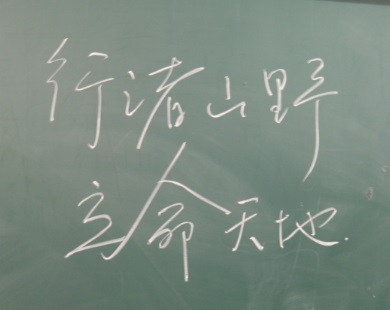 行诸山野
立命天地